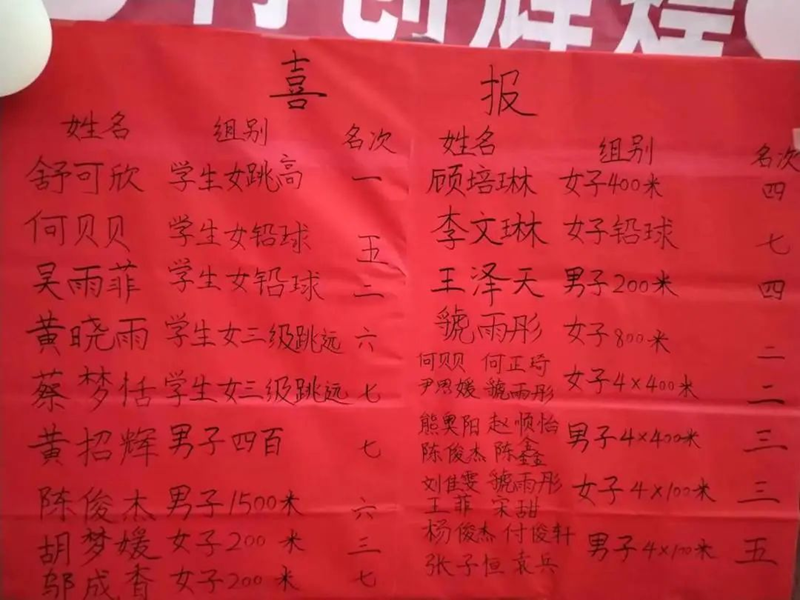 再创辉煌
喜报
姓名 组别 名次
舒可欣 学生女跳高 一
何贝贝 学生女铅球 五
吴雨菲 学生女铅球 二
黄晓雨 学生女三级跳远 六
蔡梦恬 学生女三级跳远 七
黄招辉 男子四百 七
陈俊杰 男子1500米 六
胡梦媛 女子200米 三
邬成杳 女子200米 七
姓名 组别 名次
顾培琳 女子400米 四
李文琳 女子铅球 七
王泽天 男子200米 四
虢雨彤 女子800米 二
何贝贝 何正琦
尹思媛 虢雨彤 女子4×400米 二
熊奥阳 赵顺怡
陈俊杰 陈鑫 男子4×400米 三
刘佳雯 虢雨彤
王菲 宋甜 女子4×100米 三
杨俊杰 付俊轩
张子恒 袁兵 男子4×100米 五